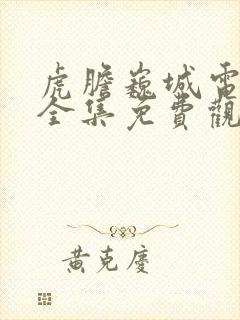 虎膽巍城電
全集免費觀
黃克慶